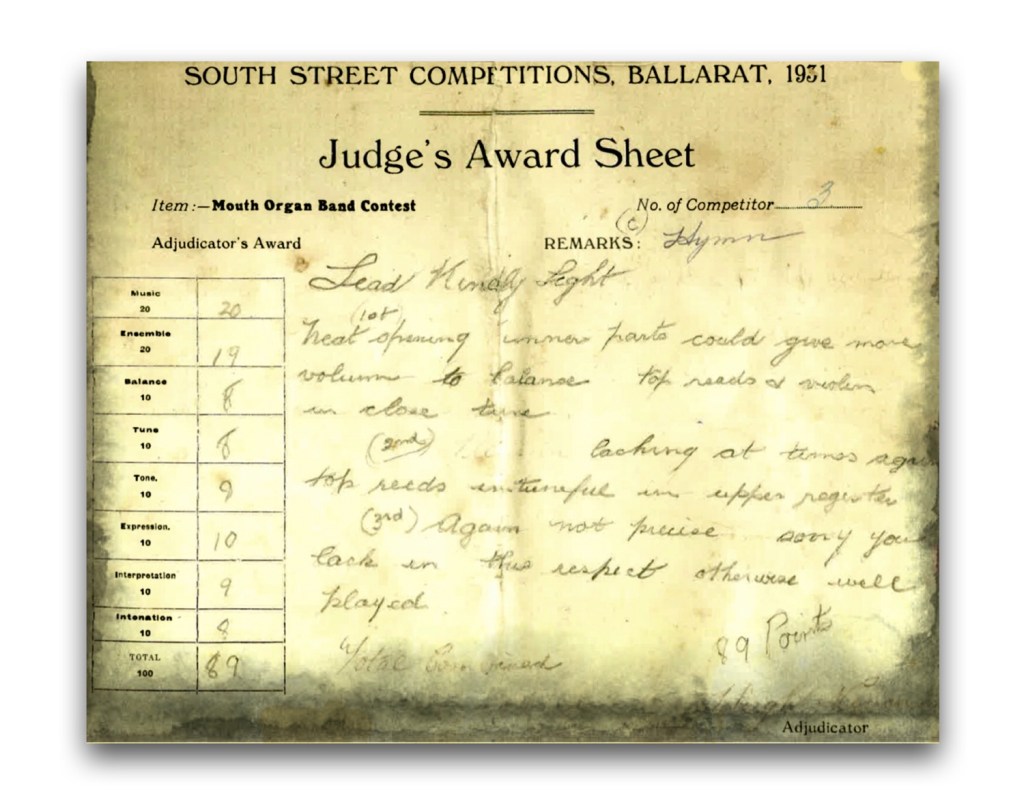 SOUTH STREET COMPETITIONS, BALLARAT, 1931
Judge's Award Sheet
Item:—Mouth Organ Band Contest No. of Competitor 3
Adjudicator's Award REMARKS: (c) Hymn
Lead Kindly Light
Music 20 20
Ensemble 20 19
Balance 10 8
Tune 10 8
Tone. 10 9
Expression. 10 10
Interpretation 10 9
Intonation 10 8
TOTAL 100 89
(1st)
neat opening inner parts could give more
volumn to balance top reads &
in close tune
(2nd) lacking at times again
top reeds in upper register
(3rd) Again not precise sorry you
lack in this respect otherwise well
played.
89 Points
Total Combined
Adjudicator